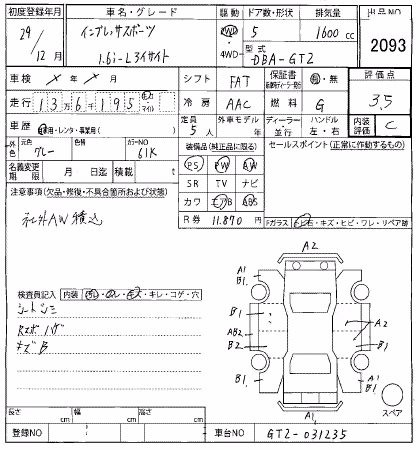 初度登録年月 車名・グレード 駆動 ドア数・形状 排気量 出品NO
29/12月 インプレッサスポーツ 1.6i-Lアイサイト 2WD 4WD 5 1600cc 2093
型式 DBA-GT2
車検 × 年 × 月 シフト FAT 保証書 有・無 評価点
走行 13万6千195 km マイル 冷房 AAC 燃料 G 3.5
車歴 自家用・レンタ・事業用( ) 定員 5人 外車モデル 年 ディーラー・並行 ハンドル 左・右 内装評価 C
外色 元色 グレー 色替 カラーNO 61K
装備品(純正品に限る) セールスポイント(正常に作動するもの)
名義変更期限 月 日迄 積載 t
PS PW AW
SR TV ナビ
カワ エアB ABS
R券 11,870円
注意事項(欠品・修復・不具合箇所および状態)
社外AW積込
Fガラス トビ石・キズ・ヒビ・ワレ・リペア跡
検査員記入 内装 キレ・コゲ・穴
シートシミ
キズB
A2
A1 B1
A1 B1
B1
AB2
B2
A2
B1
B1
A1 B1
A1
スペア
長さ cm 幅 cm 高さ cm
登録NO 車台NO GT2-031235